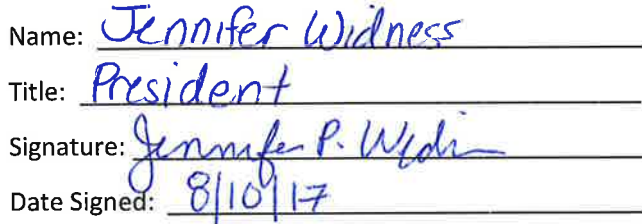 Name: Jennifer Widness
Title: President
Signature: Jennifer P. Widn
Date Signed: 8/10/17